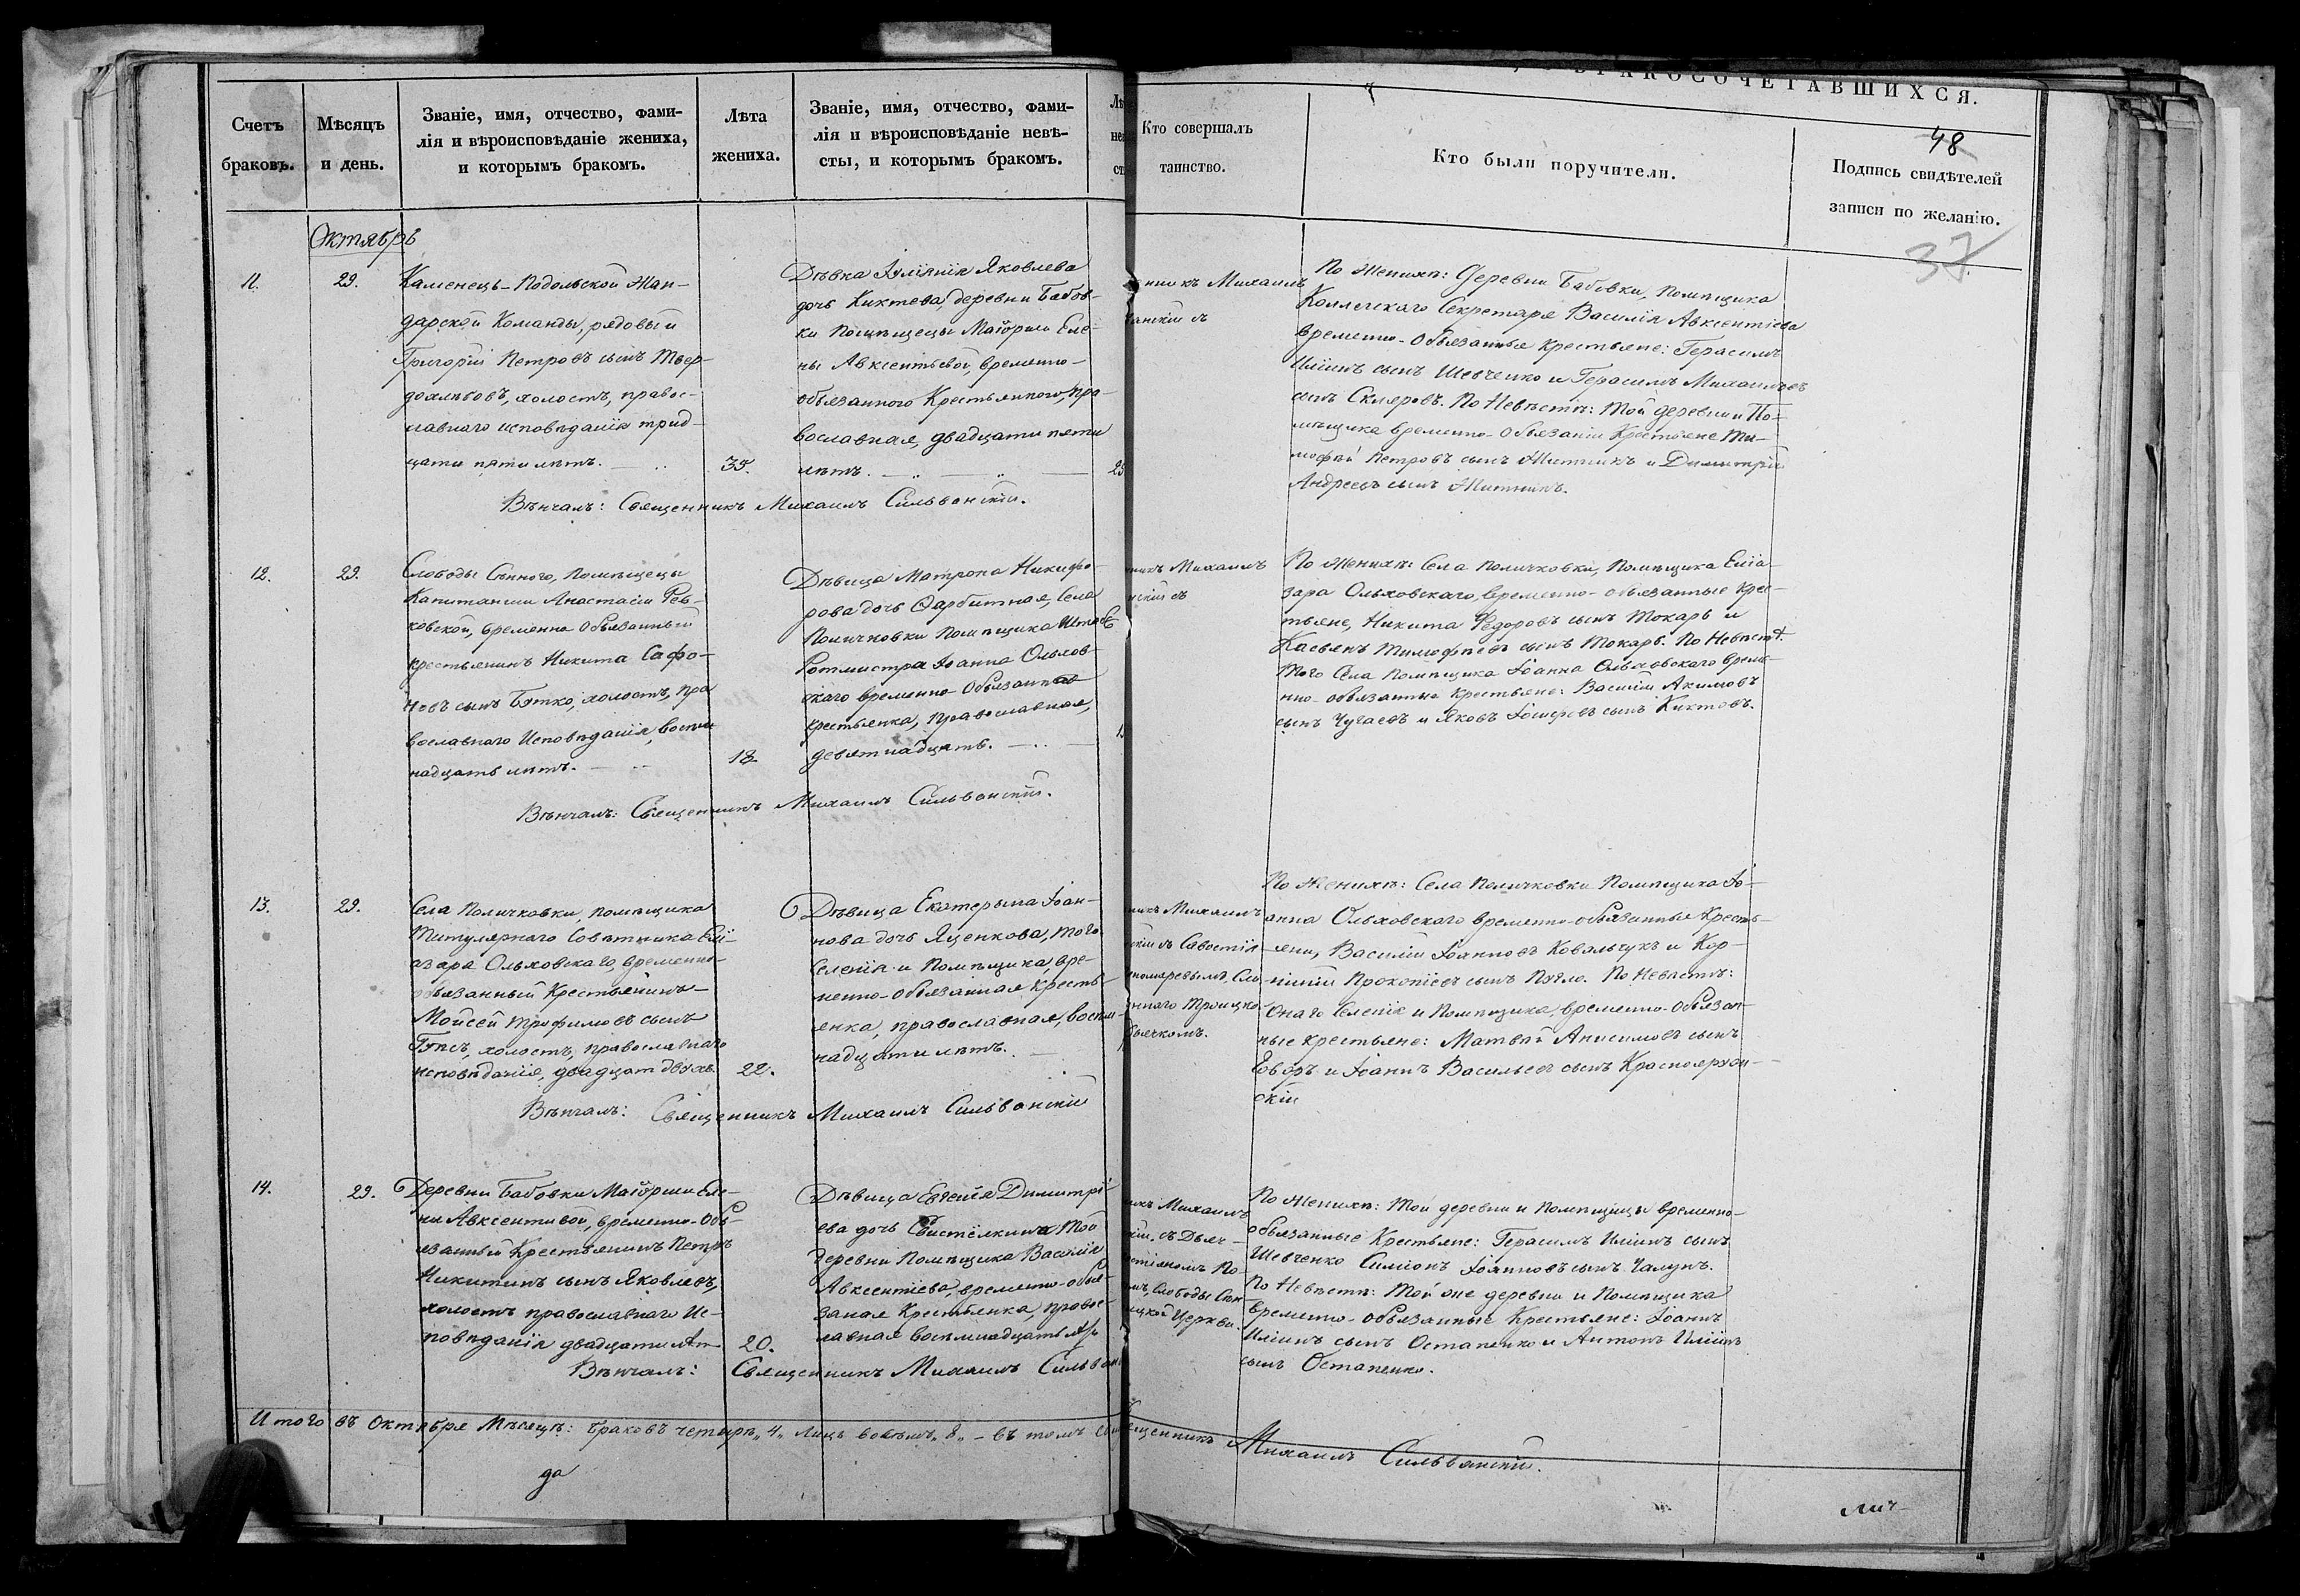 БРАКОСОЧЕТАВШИХСЯ.
48
37
Счетъ браковъ.
Мѣсяцъ и день.
Званіе, имя, отчество, фами-
лія и вѣроисповѣданіе жениха,
и которымъ бракомъ.
Лѣта жениха.
Званіе, имя, отчество, фами-
лія и вѣроисповѣданіе невѣ-
сты, и которымъ бракомъ.
Кто совершалъ
таинство.
Кто были поручители.
Подпись свидѣтелей
записи по желанію.
Октябрь
11.
29.
Каменецъ-Подольской Жан-
дарской Команды, рядовый
Григорій Петровъ сынъ Твер-
дохлѣбовъ, холостъ, правос-
лавнаго исповѣданія трид-
цати пяти лѣтъ.
35.
Дѣвка Іуліянія Яковлева
дочь Киктева, деревни Бабов-
ки Помѣщецы Маіорши Еле-
ны Авксентьевой, временно-
обязанного Крестьянного, пра-
вославная, двадцати пяти
лѣтъ.
25
Вѣнчалъ: Священникъ Михаилъ Сильванскій.
нникъ Михаилъ
ванскій съ
По Женихѣ: Деревни Бабовки, Помѣщика
Коллечскаго Секретаря Василія Авксентіева
временно-Обязанные крестьяне: Герасимъ
Иліинъ сынъ Шевченко и Герасимъ Михаиловъ
сынъ Скляровъ. По Невѣстѣ: Той деревни По-
мѣщика временно-Обязаніи Крестьяне Ти-
мофѣй Петровъ сынъ Житникъ и Димитрій
Андреевъ сынъ Житникъ.
12.
29.
Слободы Сѣнного, Помѣщецы
Капитанши Анастасіи Рев-
ковской, временно Обязанный
крестьянинъ Никита Сафо-
новъ сынъ Бутко, холостъ, пра
вославнаго Исповѣданія, восем
надцать лѣтъ.
18.
Дѣвица Матрона Никифо-
рова дочь Фарбитная, Села
Поличковки Помѣщика Штабъ
Ротмистра Іоанна Ольхов-
скаго временно Обязанная
крестьянка, Православная,
девятнадцать.
Вѣнчалъ: Священникъ Михаилъ Сильванскій.
никъ Михаилъ
нскій съ
По Женихѣ: Села Поличковки, Помѣщика Еліа-
зара Ольховскаго, временно-обязанные крес-
тьяне, Никита Федоровъ сынъ Токарь и
Касьянъ Тимофѣевъ сынъ Токарь. По Невѣстѣ
Того Села Помѣщика Іоанна Ольховскаго време-
нно обязанные крестьяне: Василій Акимовъ
сынъ Чугаевъ и Яковъ Іосифовъ сынъ Киктовъ.
13.
29.
Села Поличковки, помѣщика
Титулярнаго Совѣтника Елі-
азара Ольховскаго, временно-
обязанный Крестьянинъ-
Мойсей Трофимовъ сынъ
Гузь, холостъ, православнаго
исповѣданія, двадцати двухъ.
22.
Дѣвица Екатерына Іоан-
нова дочь Яценкова, того
Селенія и Помѣщика, вре-
менно-Обязанная кресть-
янка, православная, восем-
надцати лѣтъ.
Вѣнчалъ: Священникъ Михаилъ Сильванскій
никъ Михаилъ
скій съ Савостія-
ономаревымъ, Сло-
ннаго Троицко-
Дьячкомъ.
По Женихѣ: Села Поличковки Помѣщика Іо-
анна Ольховскаго временно-обязанные Кресть-
яни, Василій Іоанновъ Ковальчукъ и Кор-
нилій Прокопіевъ сынъ Пугло. По Невѣстѣ:
Онаго Селенія и Помѣщика, временно-Обязан-
ные крестьяне: Матвѣй Анисимовъ сынъ
и Іоаннъ Васильевъ сынъ
скій
14.
29.
Деревни Бабовки Маіорши Еле-
ны Авксентьевой, временно-Об-
язанный Крестьянинъ Петръ
Никитинъ сынъ Яковлевъ,
холостъ православнаго Ис-
повѣданія двадцати лѣт
20.
Дѣвица Евгенія Димитрі-
ева дочь Свистёлкина той
деревни Помѣщика Василія
Авксентіева, временно-обя-
заная Крестьянка, правос-
лавная восемнадцать лѣ
Вѣнчалъ: Священникъ Михаилъ Сильван
икъ Михаилъ
кій. съ Дьяч-
стіяномъ По-
мъ, Слободы Сѣн
ицкой Церкви.
По Женихѣ: Той деревни и Помѣщицы временно-
обязанные Крестьяне: Герасимъ Иліинъ сынъ
Шевченко Симіонъ Іоанновъ сынъ Чалунъ.
По Невѣстѣ: Той оне деревни и Помѣщика
временно-обязанные Крестьяне: Іоаннъ
Иліинъ сынъ Остапенко и Антонъ Иліинъ
сынъ Остапенко.
Итого въ Октябрѣ Мѣсяцѣ: браковъ четыре „4„ Лицъ восьмъ „8„ - въ томъ Священникъ Михаилъ Сильванскій.
да
лич